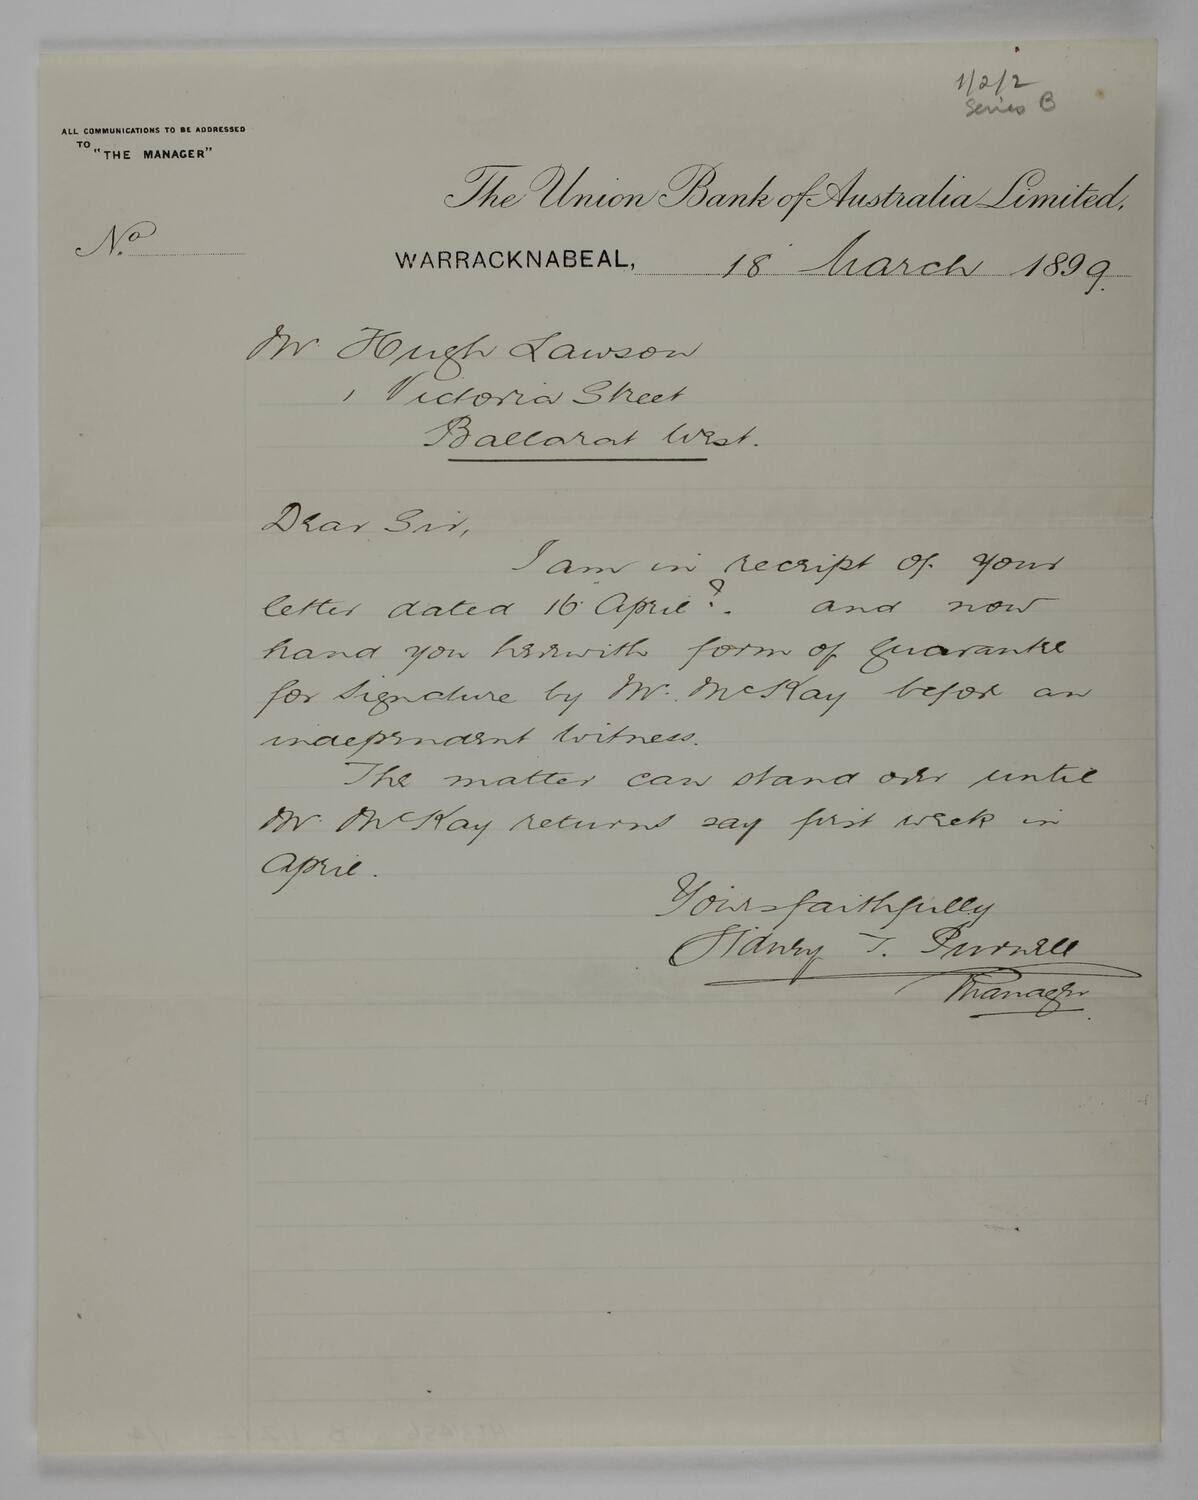 1/2/2
Series B
ALL COMMUNICATIONS TO BE ADDRESSED
TO "THE MANAGER"
The Union Bank of Australia Limited,
No.
WARRACKNABEAL, 18 March 1899.
Mr. Hugh Lawson
1 Victoria Street
Ballarat West.
Dear Sir,
I am in receipt of your
letter dated 16 April?. and now
hand you herewith form of guarantee
for signature by Mr. McKay before an
independent witness.
The matter can stand over until
Mr. McKay returns say first week in
April.
Yours faithfully
Sidney T. Purnell
Manager